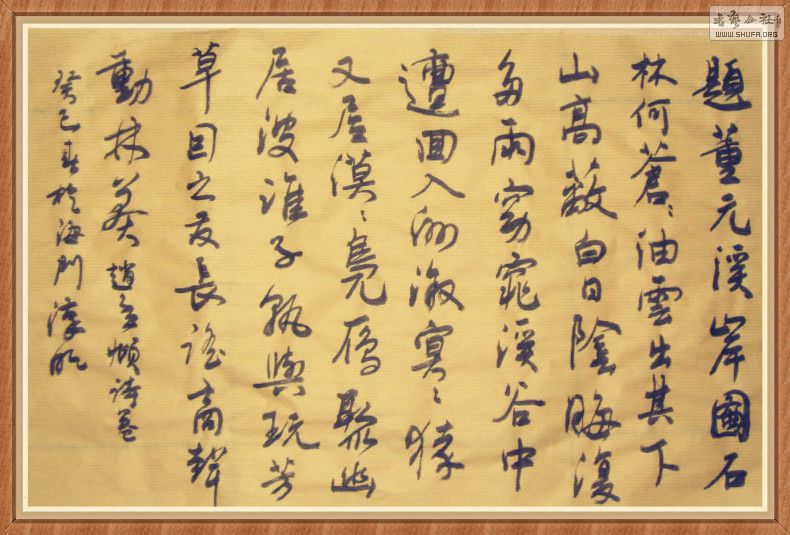 題董元溪岸圖石
林何蒼〻油雲出其下
山高蔽白日陰晦復
多雨窈窕溪谷中
遭回入洲溆冥〻猿
又居漠〻鳧雁聚幽
居波誰子孰與玩芳
草因之发長謠商聲
動林莽 趙孟頫詩卷
癸巳春於海門
书艺公社
WWW.SHUFA.ORG